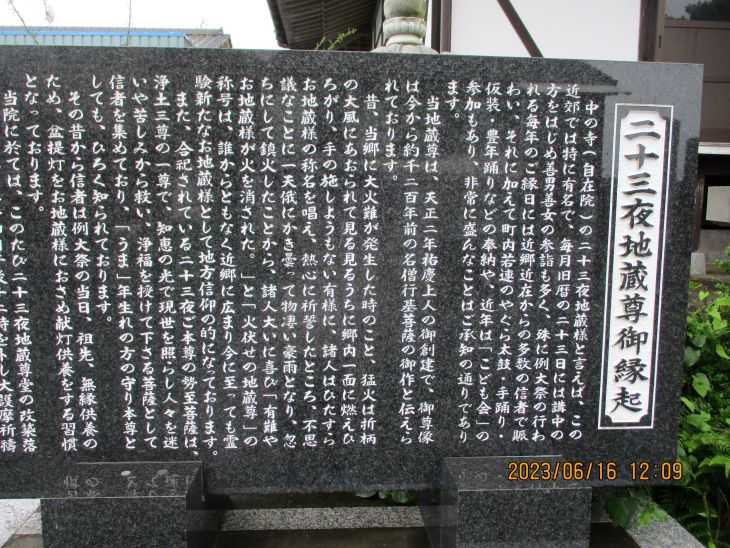 二十三夜地蔵尊御縁起
中の寺（自在院）の二十三夜地蔵様と言えば、この
近郊では特に有名で、毎月旧暦の二十三日には講中の
方をはじめ善男善女の参詣も多く、殊に例大祭の行わ
れる毎年のご縁日には近郷近在からの多数の信者で賑
わい、それに加えて町内若連のやぐら太鼓・手踊り・
仮装・豊年踊りなどの奉納や、近年は「こども会」の
参加もあり、非常に盛んなことはご承知の通りであり
ます。
当地蔵尊は、天正二年祐慶上人の御創建で、御尊像
は今から約千二百年前の名僧行基菩薩の御作と伝えら
れております。
昔、当郷に大火難が発生した時のこと、猛火は折柄
の大風にあおられて見る見るうちに郷内一面に燃えひ
ろがり、手の施しようもない有様に、諸人はひたすら
お地蔵様の称名を唱え、熱心に祈誓したところ、不思
議なことに一天俄にかき曇って物凄い豪雨となり、忽
ちにして鎮火したことから、諸人大いに喜び「有難や
お地蔵様が火を消された。」と「火伏せの地蔵尊」の
称号は、誰からともなく近郷に広まり今に至っても霊
験新たなお地蔵様として地方信仰の的になっております。
また、合祀されている二十三夜ご本尊の勢至菩薩は、
浄土三尊の一尊で、知恵の光で現世を照らし人々を迷
いや苦しみから救い、浄福を授けて下さる菩薩として
信者を集めており、「うま」年生れの方の守り本尊と
しても、ひろく知られております。
その昔から信者は例大祭の当日、祖先、無縁供養の
ため、盆提灯をお地蔵様におさめ献灯供養をする習慣
となっております。
当院に於ては、このたび二十三夜地蔵尊堂の改築落
2023/06/16 12:09